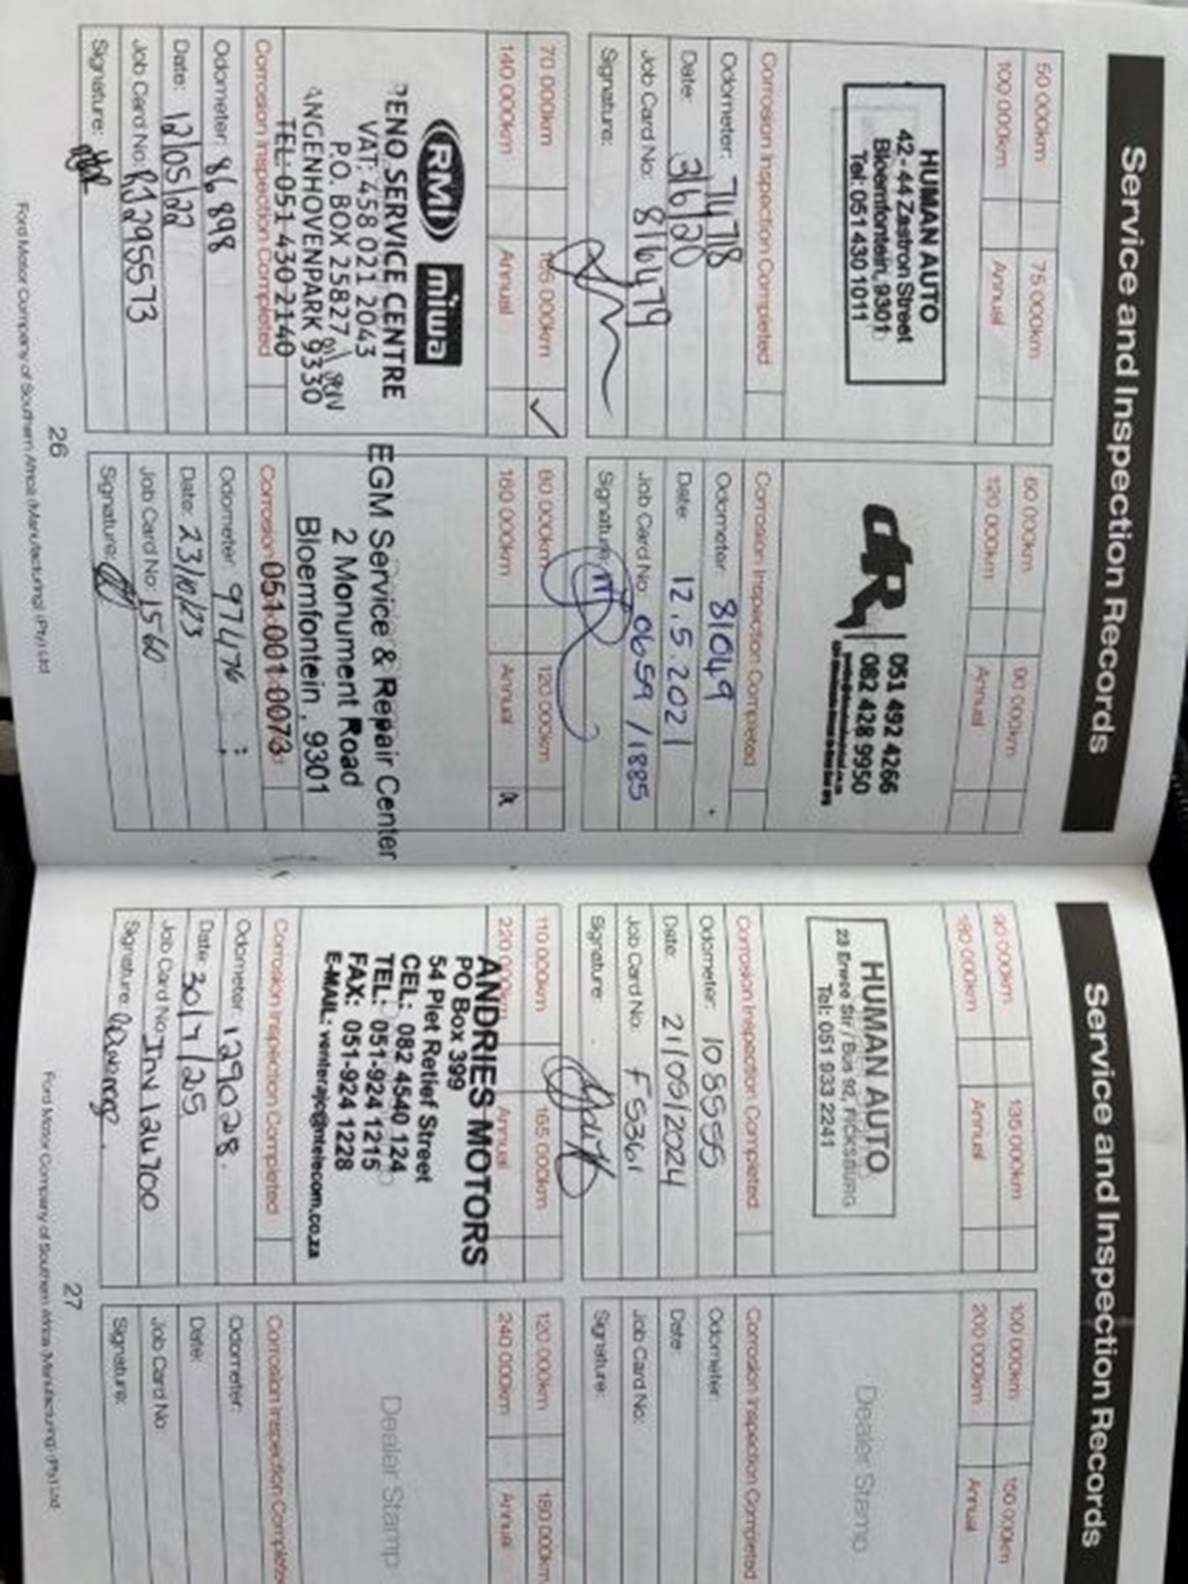 Service and Inspection Records
50 000km
75 000km
100 000km
Annual
HUMAN AUTO
42-44 Zastron Street
Bloemfontein, 9301
Tel: 051 430 1011
Corrosion Inspection Completed
Odometer: 74718
Date: 3/6/20
Job Card No: 816479
Signature:
60 000km
90 000km
120 000km
Annual
dR
051 492 4266
082 428 9950
Corrosion Inspection Completed
Odometer: 81049
Date: 12.5.2021
Job Card No: 0659 /1885
Signature:
70 000km
105 000km ✓
140 000km
Annual
RMI miwa
RENO SERVICE CENTRE
VAT: 458 021 2043
P.O. BOX 25827
ANGENHOVENPARK 9330
TEL: 051 430 2140
Corrosion Inspection Completed
Odometer: 86898
Date: 12/05/22
Job Card No: RJ295573
Signature:
80 000km
120 000km
160 000km
Annual
EGM Service & Repair Center
2 Monument Road
Bloemfontein, 9301
051 001 0073
Corrosion
Odometer: 97476
Date: 23/10/23
Job Card No: 1560
Signature:
26
Ford Motor Company of Southern Africa (Manufacturing) (Pty) Ltd
Service and Inspection Records
90 000km
135 000km
180 000km
Annual
HUMAN AUTO
Tel: 051 933 2241
Corrosion Inspection Completed
Odometer: 108555
Date: 21/09/2024
Job Card No: FS361
Signature:
100 000km
150 000km
200 000km
Annual
Dealer Stamp
Corrosion Inspection Completed
Odometer:
Date:
Job Card No:
Signature:
110 000km
165 000km
220 000km
Annual
ANDRIES MOTORS
PO Box 399
54 Piet Retief Street
CEL: 082 4540 124
TEL: 051-924 1215
FAX: 051-924 1228
E-MAIL: venterajc@ntelecom.co.za
Corrosion Inspection Completed
Odometer: 129028.
Date: 30/7/25
Job Card No: Inv 124700
Signature:
120 000km
180 000km
240 000km
Annual
Dealer Stamp
Corrosion Inspection Complete
Odometer:
Date:
Job Card No:
Signature:
27
Ford Motor Company of Southern Africa (Manufacturing) (Pty) Ltd